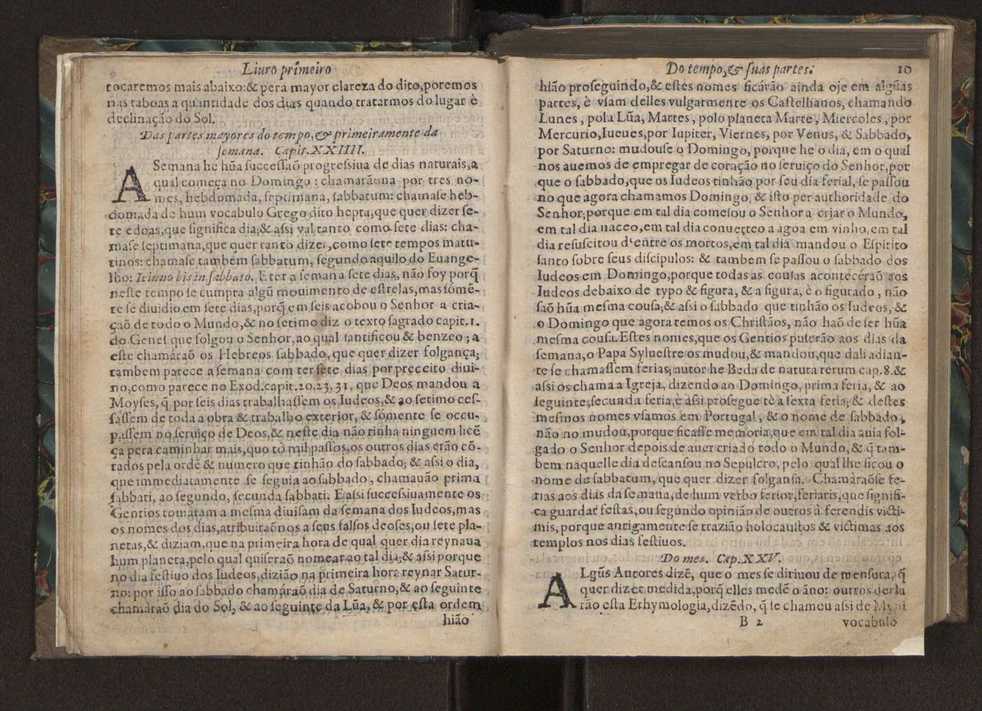 Liuro primeiro
tocaremos mais abaixo: & pera mayor clareza do dito, poremos
nas taboas a quãtidade dos dias quando tratarmos do lugar è
declinação do Sol.
Das partes mayores do tempo, & primeiramente da
semana. Capit. XXIIII.
A Semana he hũa successaõ progressiua de dias naturais, a
qual começa no Domingo: chamarãona por tres no-
mes, hebdomada, septimana, sabbatum: chamase heb-
domada de hum vocabulo Grego dito hepta, que quer dizer se-
te e doas, que significa dia; & assi val tanto como sete dias: cha-
mase septimana, que quer tanto dizer, como sete tempos matu-
tinos: chamase tambem sabbatum, segundo aquillo do Euange-
lho: Ieiuno bis in sabbato. E ter a semana sete dias, não foy porq̃
neste tempo se cumpra algũ mouimento de estrelas, mas sómẽ-
te se diuidio em sete dias, porq̃ em seis acobou o Senhor a cria-
çaõ de todo o Mundo, & no setimo diz o texto sagrado capit. 1.
do Genes. que folgou o Senhor, ao qual santificou & benzeo; a
este chamàraõ os Hebreos sabbado, que quer dizer folgança;
tambem parece a semana com ter sete dias por preceito diui-
no, como parece no Exod. capit. 20, 23, 31, que Deos mandou a
Moyses, q̃ por seis dias trabalhassem os Iudeos, & ao setimo ces-
sassem de toda a obra & trabalho exterior, & sómente se occu-
passem no seruiço de Deos, & neste dia não tinha ninguem licẽ
ça pera caminhar mais, quo tò mil passos, os outros dias erão cõ-
tados pela ordẽ & numero que tinhão do sabbado; & assi o dia,
que immediatamente se seguia ao sabbado, chamauão prima
sabbati, ao segundo, secunda sabbati. E assi successiuamente os
Gentios tomàram a mesma diuisam da semana dos Iudeos, mas
os nomes dos dias, atribuiraõ nos a seus falsos deoses, ou sete pla-
netas, & diziam, que na primeira hora de qual quer dia reynaua
hum planeta, pelo qual quiseraõ nomear ao tal dia; & assi porque
no dia festiuo dos Iudeos, dizião na primeira hora reynar Satur-
no: por isso ao sabbado chamàraõ dia de Saturno, & ao seguinte
chamàraõ dia do Sol, & ao seguinte da Lũa, & por esta ordem
hião
Do tempo, & suas partes. 10
hião proseguindo, & estes nomes ficàrão ainda oje em algũas
partes, è vsam delles vulgarmente os Castelhanos, chamando
Lunes, pola Lũa, Martes, polo planeta Marte, Miercoles, por
Mercurio, Iueues, por Iupiter, Viernes, por Venus, & Sabbado,
por Saturno: mudouse o Domingo, porque he o dia, em o qual
nos auemos de empregar de coração no seruiço do Senhor, por
que o sabbado, que os Iudeos tinhão por seu dia ferial, se passou
no que agora chamamos Domingo, & isto per authoridade do
Senhor, porque em tal dia comesou o Senhor a criar o Mundo,
em tal dia naceo, em tal dia conuerteo a agoa em vinho, em tal
dia resuscitou d'entre os mortos, em tal dia mandou o Espirito
santo sobre seus discipulos: & tambem se passou o sabbado dos
Iudeos em Domingo, porque todas as cousas acontecèraõ aos
Iudeos debaixo de typo & figura, & a figura, è o figurado, não
saõ hũa mesma cousa, & assi o sabbado que tinhão os Iudeos, &
o Domingo que agora temos os Christãos, não haõ de ser hũa
mesma cousa. Estes nomes, que os Gentios puserão aos dias da
semana, o Papa Syluestre os mudou, & mandou, que dali adian-
te se chamassem ferias, autor he Beda de natura rerum cap. 8. &
assi os chama a Igreja, dizendo ao Domingo, prima feria, & ao
seguinte, secunda feria, è assi prosegue tè a sexta feria, & destes
mesmos nomes vsamos em Portugal, & o nome de sabbado,
não no mudou, porque ficasse memoria, que em tal dia auia fol-
gado o Senhor depois de auer criado todo o Mundo, & q̃ tam-
bem naquelle dia descansou no Sepulcro, pelo qual lhe ficou o
nome de sabbatum, que quer dizer folgansa. Chamàraõse fe-
rias aos dias da semana, de hum verbo ferior, feriaris, que signifi-
ca guardar festas, ou segundo opinião de outros à ferendis victi-
mis, porque antigamente se trazião holocaustos & victimas aos
templos nos dias festiuos.
Do mes. Cap. XXV.
A Lgũs Autores dizẽ, que o mes se diriuou de mensura, q̃
quer dizer medida, porq̃ elles medẽ o àno: outros derão
esta Ethymologia, dizẽdo, q̃ se chamou assi de
B 2 vocabulo